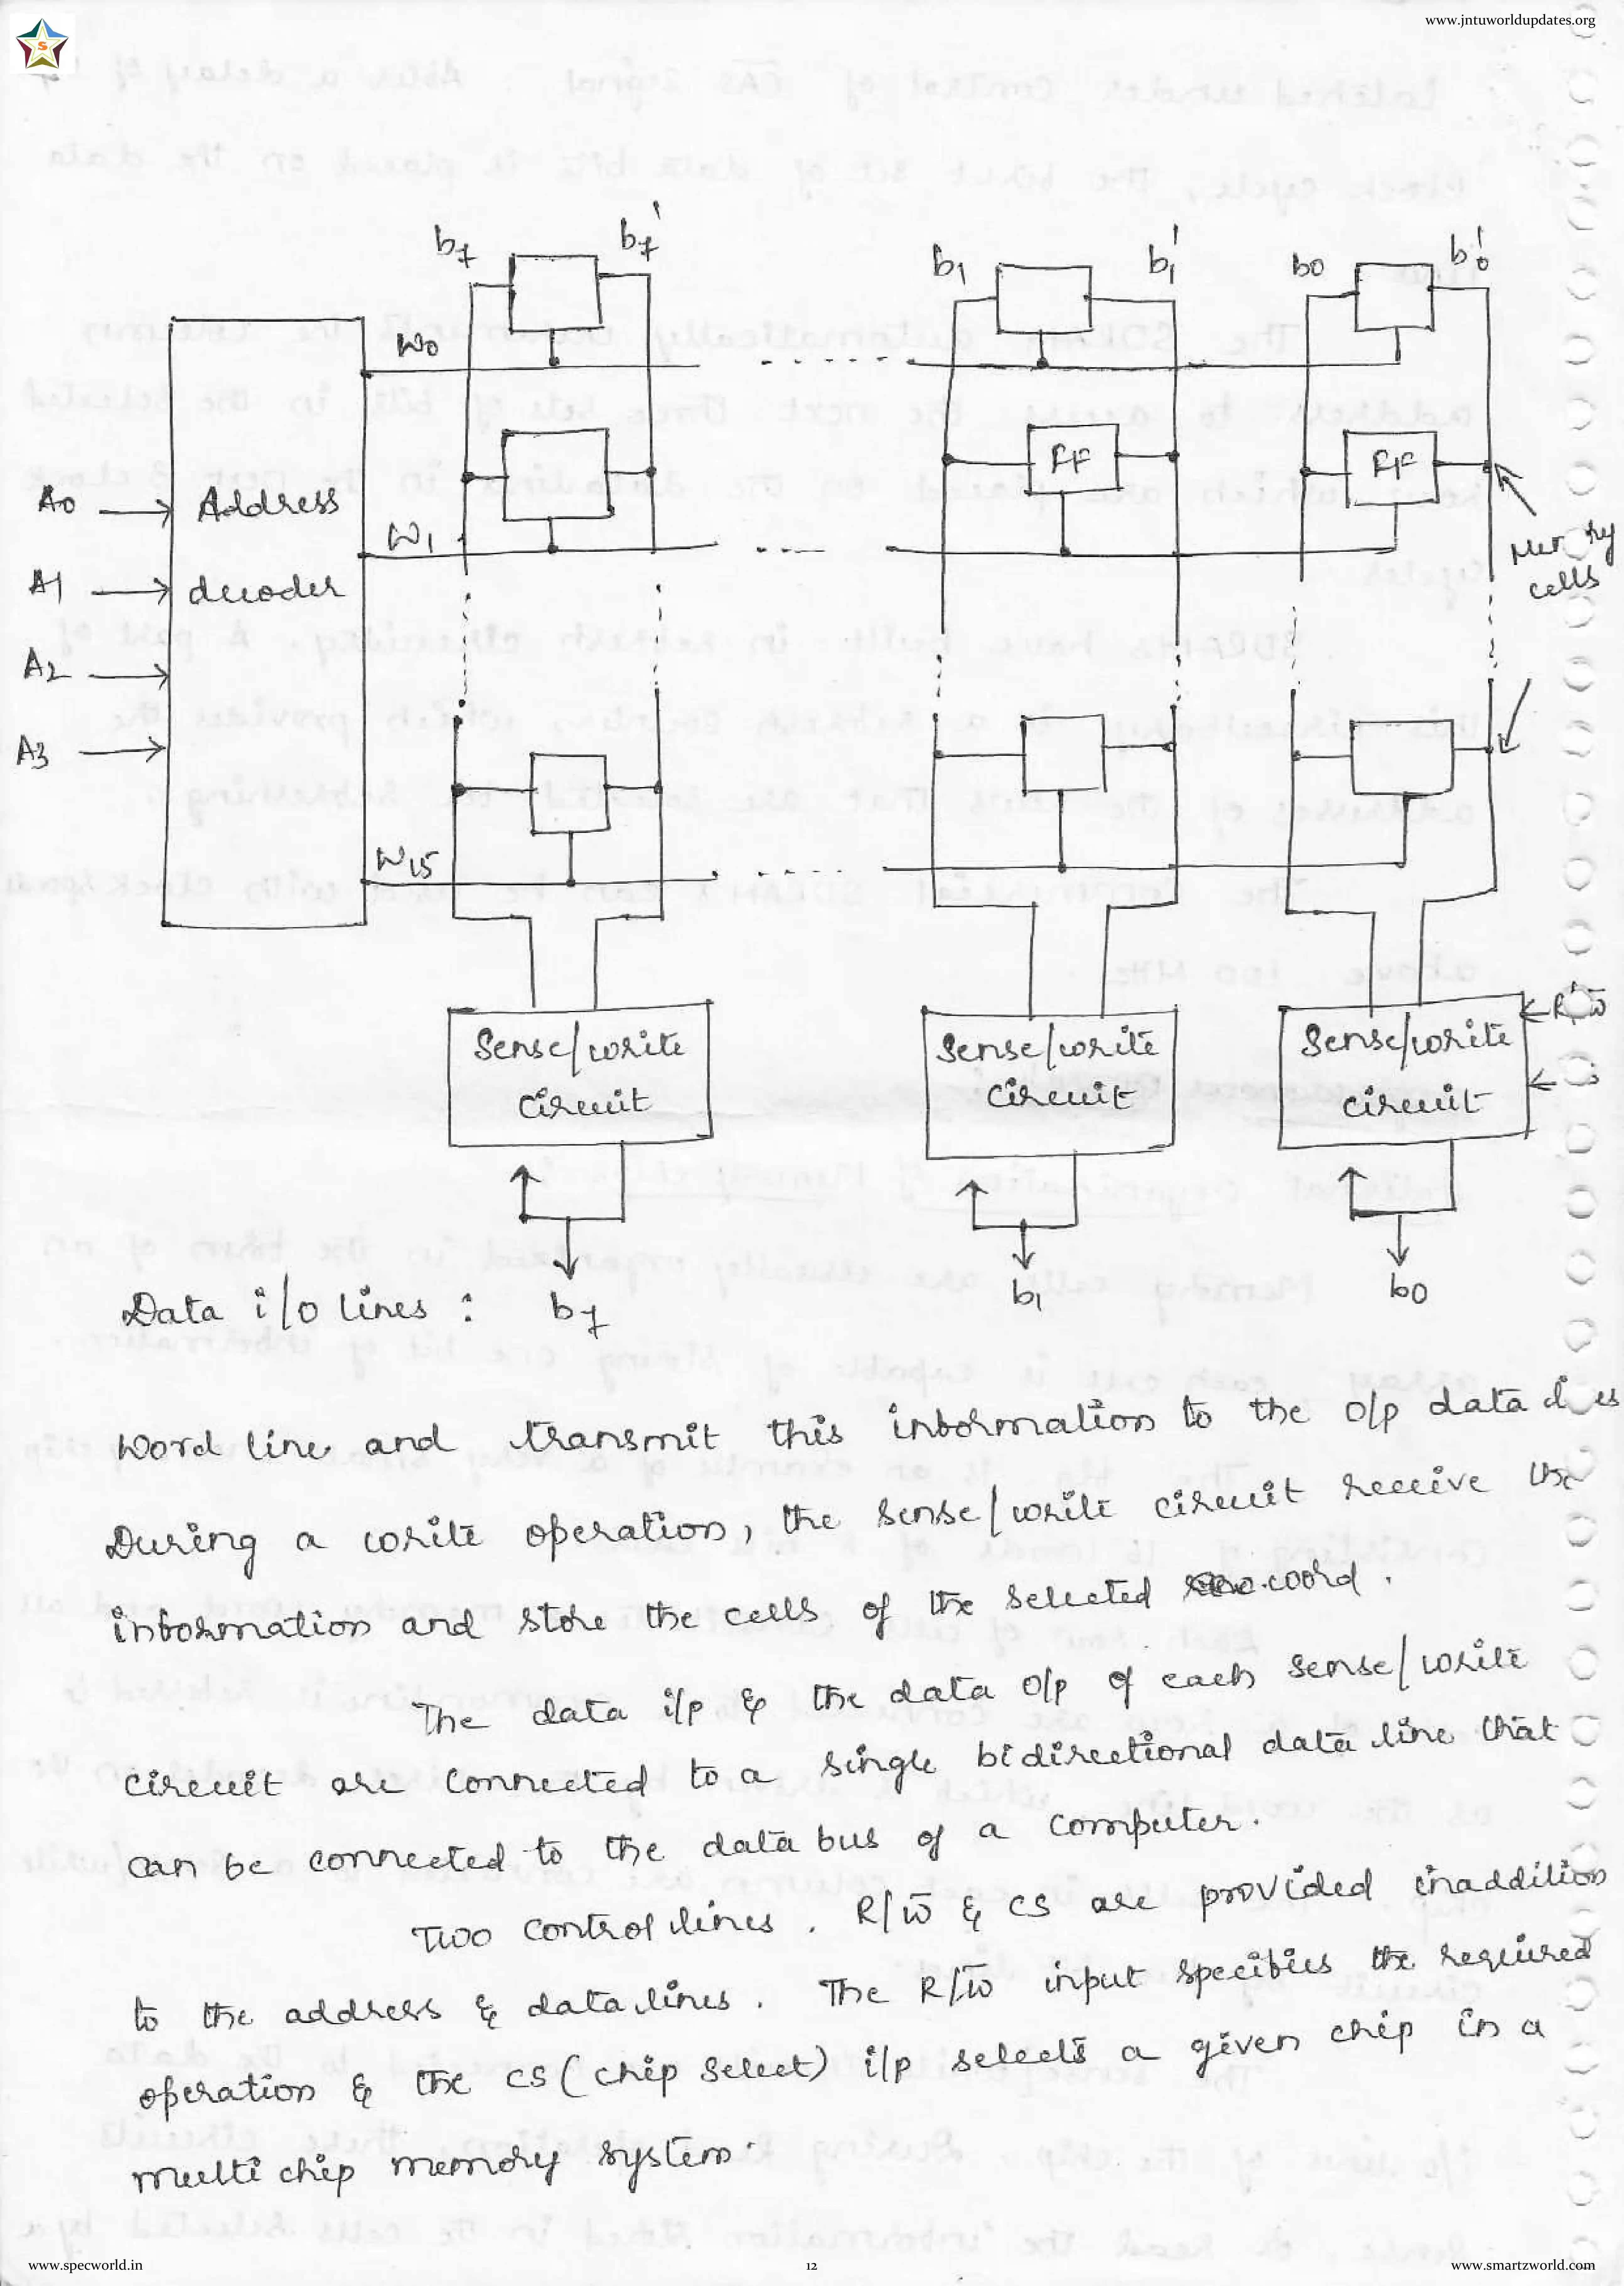 www.jntuworldupdates.org
S
b7 b7' b1 b1' b0 b0'
W0
FF FF
A0 Address
W1
Memory
cells
A1 decoder
A2
A3
W15
R/W̅
Sense/write Sense/write Sense/write
circuit circuit circuit
Data i/o lines : b7 b1 b0
Word line and transmit this information to the o/p data
During a write operation, the sense/write circuit receive the
information and store the cells of the selected word.
The data i/p & the data o/p of each sense/write
circuit are connected to a single bidirectional data line that
can be connected to the data bus of a computer.
Two control lines . R/W̅ & CS are provided inaddition
to the address & data lines . The R/W̅ input specifies the required
operation & the CS (chip select) i/p selects a given chip in a
multi chip memory system.
www.specworld.in 12 www.smartzworld.com